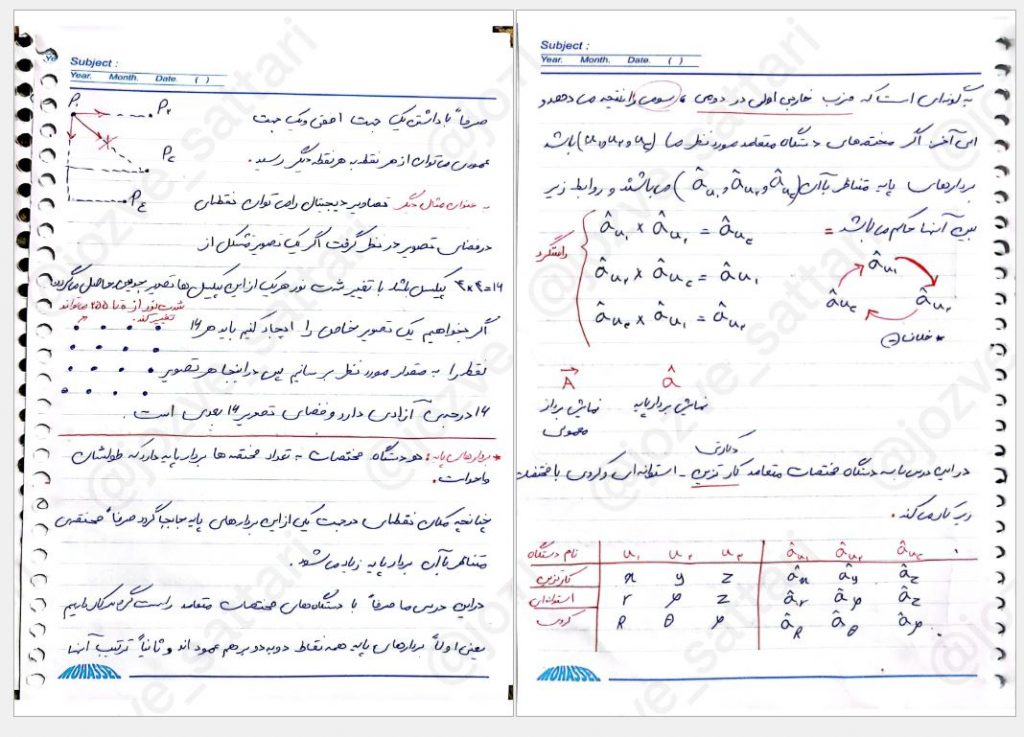 Subject :
Year. Month. Date. ( )
P₁ P₂
P₃
P₄
صرفاً با داشتن یک جهت افقی و یک جهت
عمودی می‌توان از هر نقطه به هر نقطه دیگر رسید.
به عنوان مثال دیگر تصاویر دیجیتال را می‌توان نقطه‌ای
در فضای تصویر در نظر گرفت اگر یک تصویر متشکل از
۴×۴=۱۶ پیکسل باشد با تغییر شدت نور هر یک از این پیکسل‌ها تصویر جدیدی حاصل می‌گردد
شدت نور از ۰ تا ۲۵۵ می‌تواند
تغییر کند.
اگر بخواهیم یک تصویر خاص را ایجاد کنیم باید هر ۱۶
نقطه را به مقدار مورد نظر برسانیم پس در اینجا هر تصویر
۱۶ درجه‌ی آزادی دارد و فضای تصویر ۱۶ بعدی است.
* بردارهای پایه: هر دستگاه مختصات به تعداد مختصه‌ها بردار پایه دارد که طولشان
واحد است.
چنانچه مکان نقطه‌ای در جهت یکی از این بردارهای پایه جابجا گردد صرفاً مختصه‌ی
متناظر با آن بردار پایه زیاد می‌شود.
در این درس ما صرفاً با دستگاه‌های مختصات متعامد راست‌گرد کار داریم
یعنی اولاً بردارهای پایه همه نقاط دو به دو بر هم عمودند و ثانیاً ترتیب آنها
MOHASSEL
Subject :
Year. Month. Date. ( )
به گونه‌ای است که ضرب خارجی اولی در دومی، سومی را نتیجه می‌دهد و
این آخر: اگر مختصه‌های دستگاه متعامد مورد نظر ما (u₁ و u₂ و u₃) باشد
بردارهای پایه متناظر با آن (â_u₁ و â_u₂ و â_u₃) می‌باشند و روابط زیر
بین آنها حاکم می‌باشد =
راستگرد
â_u₁ × â_u₁ = â_u₃
â_u₂ × â_u₃ = â_u₁
â_u₃ × â_u₁ = â_u₂
â_u₁
â_u₃ â_u₂
* خلاف (-)
A⃗ â
نمایش بردار نمایش بردار پایه
معمولی
دکارتی
در این درس با سه دستگاه مختصات متعامد کارتزین - استوانه‌ای و کروی با مختصات
زیر کار می‌کند.
نام دستگاه u₁ u₂ u₃ â_u₁ â_u₂ â_u₃
کارتزین x y z â_x â_y â_z
استوانه‌ای r φ z â_r â_φ â_z
کروی R θ φ â_R â_θ â_φ
MOHASSEL
@jozve_sattari